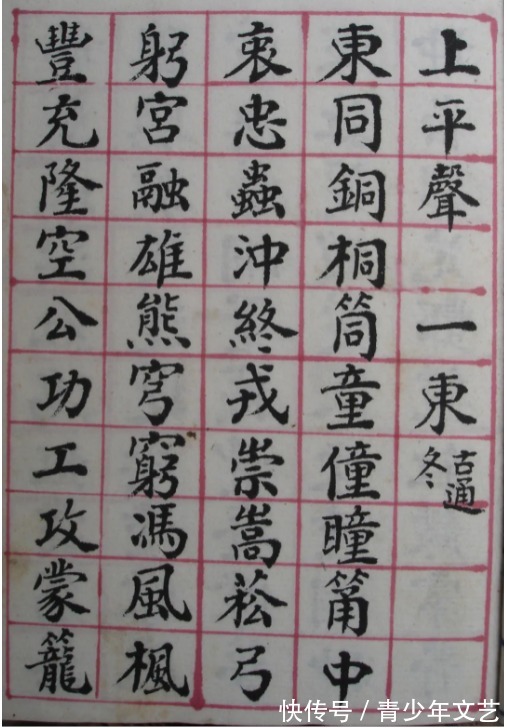 上平聲一東古通冬
東同銅桐筒童僮瞳筩中
衷忠蟲沖終戎崇嵩菘弓
躬宮融雄熊穹窮馮風楓
豐充隆空公功工攻蒙籠
快传号 / 青少年文艺